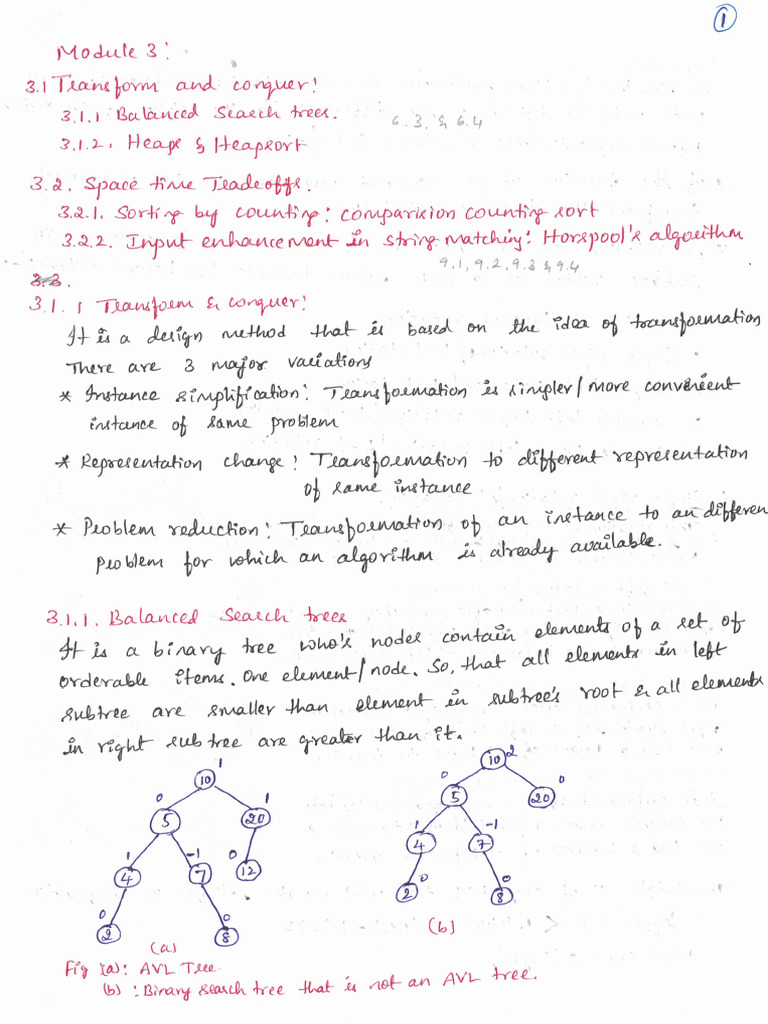 1
Module 3:
3.1 Transform and conquer:
3.1.1 Balanced Search trees.
6.3. & 6.4
3.1.2. Heaps & Heapsort
3.2. Space time Tradeoffs.
3.2.1. Sorting by counting: comparision counting sort
3.2.2. Input enhancement in string matching: Horspool's algorithm
9.1, 9.2, 9.3 & 9.4
3.3.
3.1.1 Transform & conquer:
It is a design method that is based on the idea of transformation
There are 3 major variations
* Instance simplification: Transformation is simpler/more convenient
instance of same problem
* Representation change: Transformation to different representation
of same instance
* Problem reduction: Transformation of an instance to an differen
problem for which an algorithm is already available.
3.1.1. Balanced Search trees
It is a binary tree who's nodes contain elements of a set of
orderable items. One element/node. So, that all elements in left
subtree are smaller than element in subtree's root & all elements
in right subtree are greater than it.
1 10
0 5 1 20
1 4 -1 7 0 12
0 2 0 8
(a)
10 2
0 5 0 20
1 4 -1 7
2 0 0 8
(b)
Fig (a): AVL Tree.
(b): Binary search tree that is not an AVL tree.